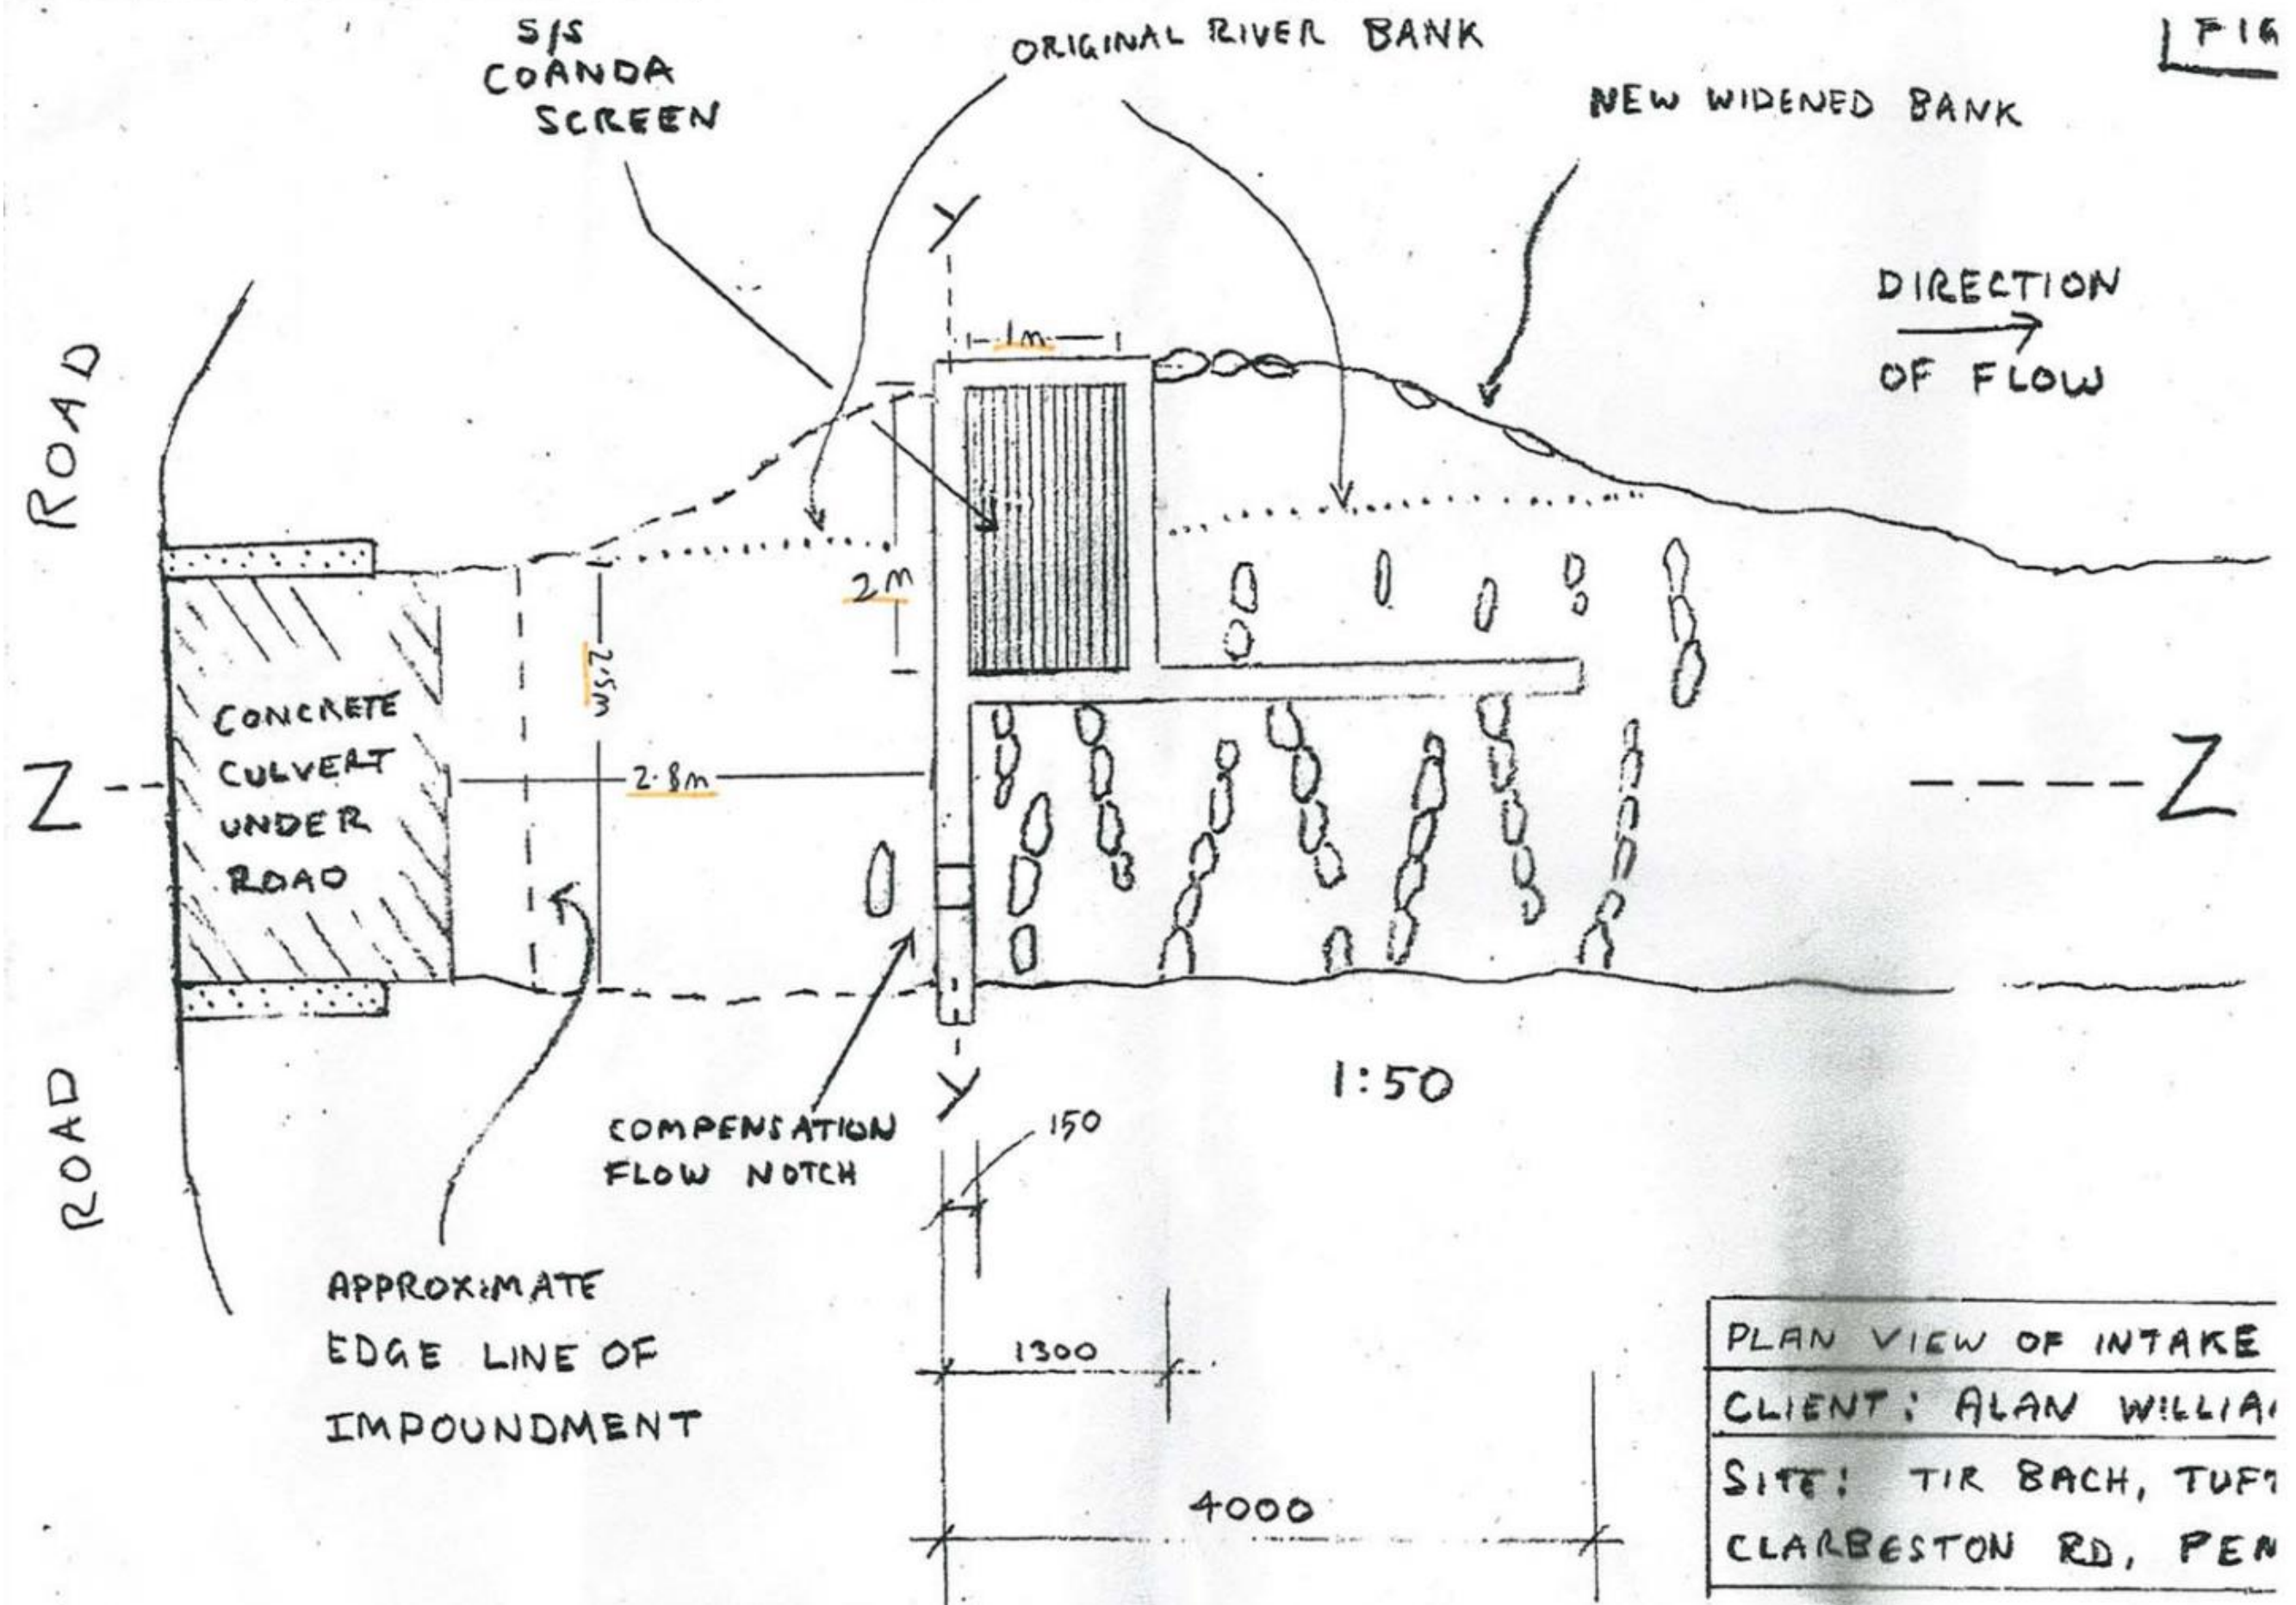 S/S
COANDA
SCREEN
ORIGINAL RIVER BANK
NEW WIDENED BANK
FIG
DIRECTION
OF FLOW
ROAD
Y
1m
2m
2.5m
CONCRETE
CULVERT
UNDER
ROAD
Z
2.8m
Z
ROAD
Y
1:50
COMPENSATION
FLOW NOTCH
150
APPROXIMATE
EDGE LINE OF
IMPOUNDMENT
1300
4000
PLAN VIEW OF INTAKE
CLIENT: ALAN WILLIA
SITE: TIR BACH, TUF
CLARBESTON RD, PEN